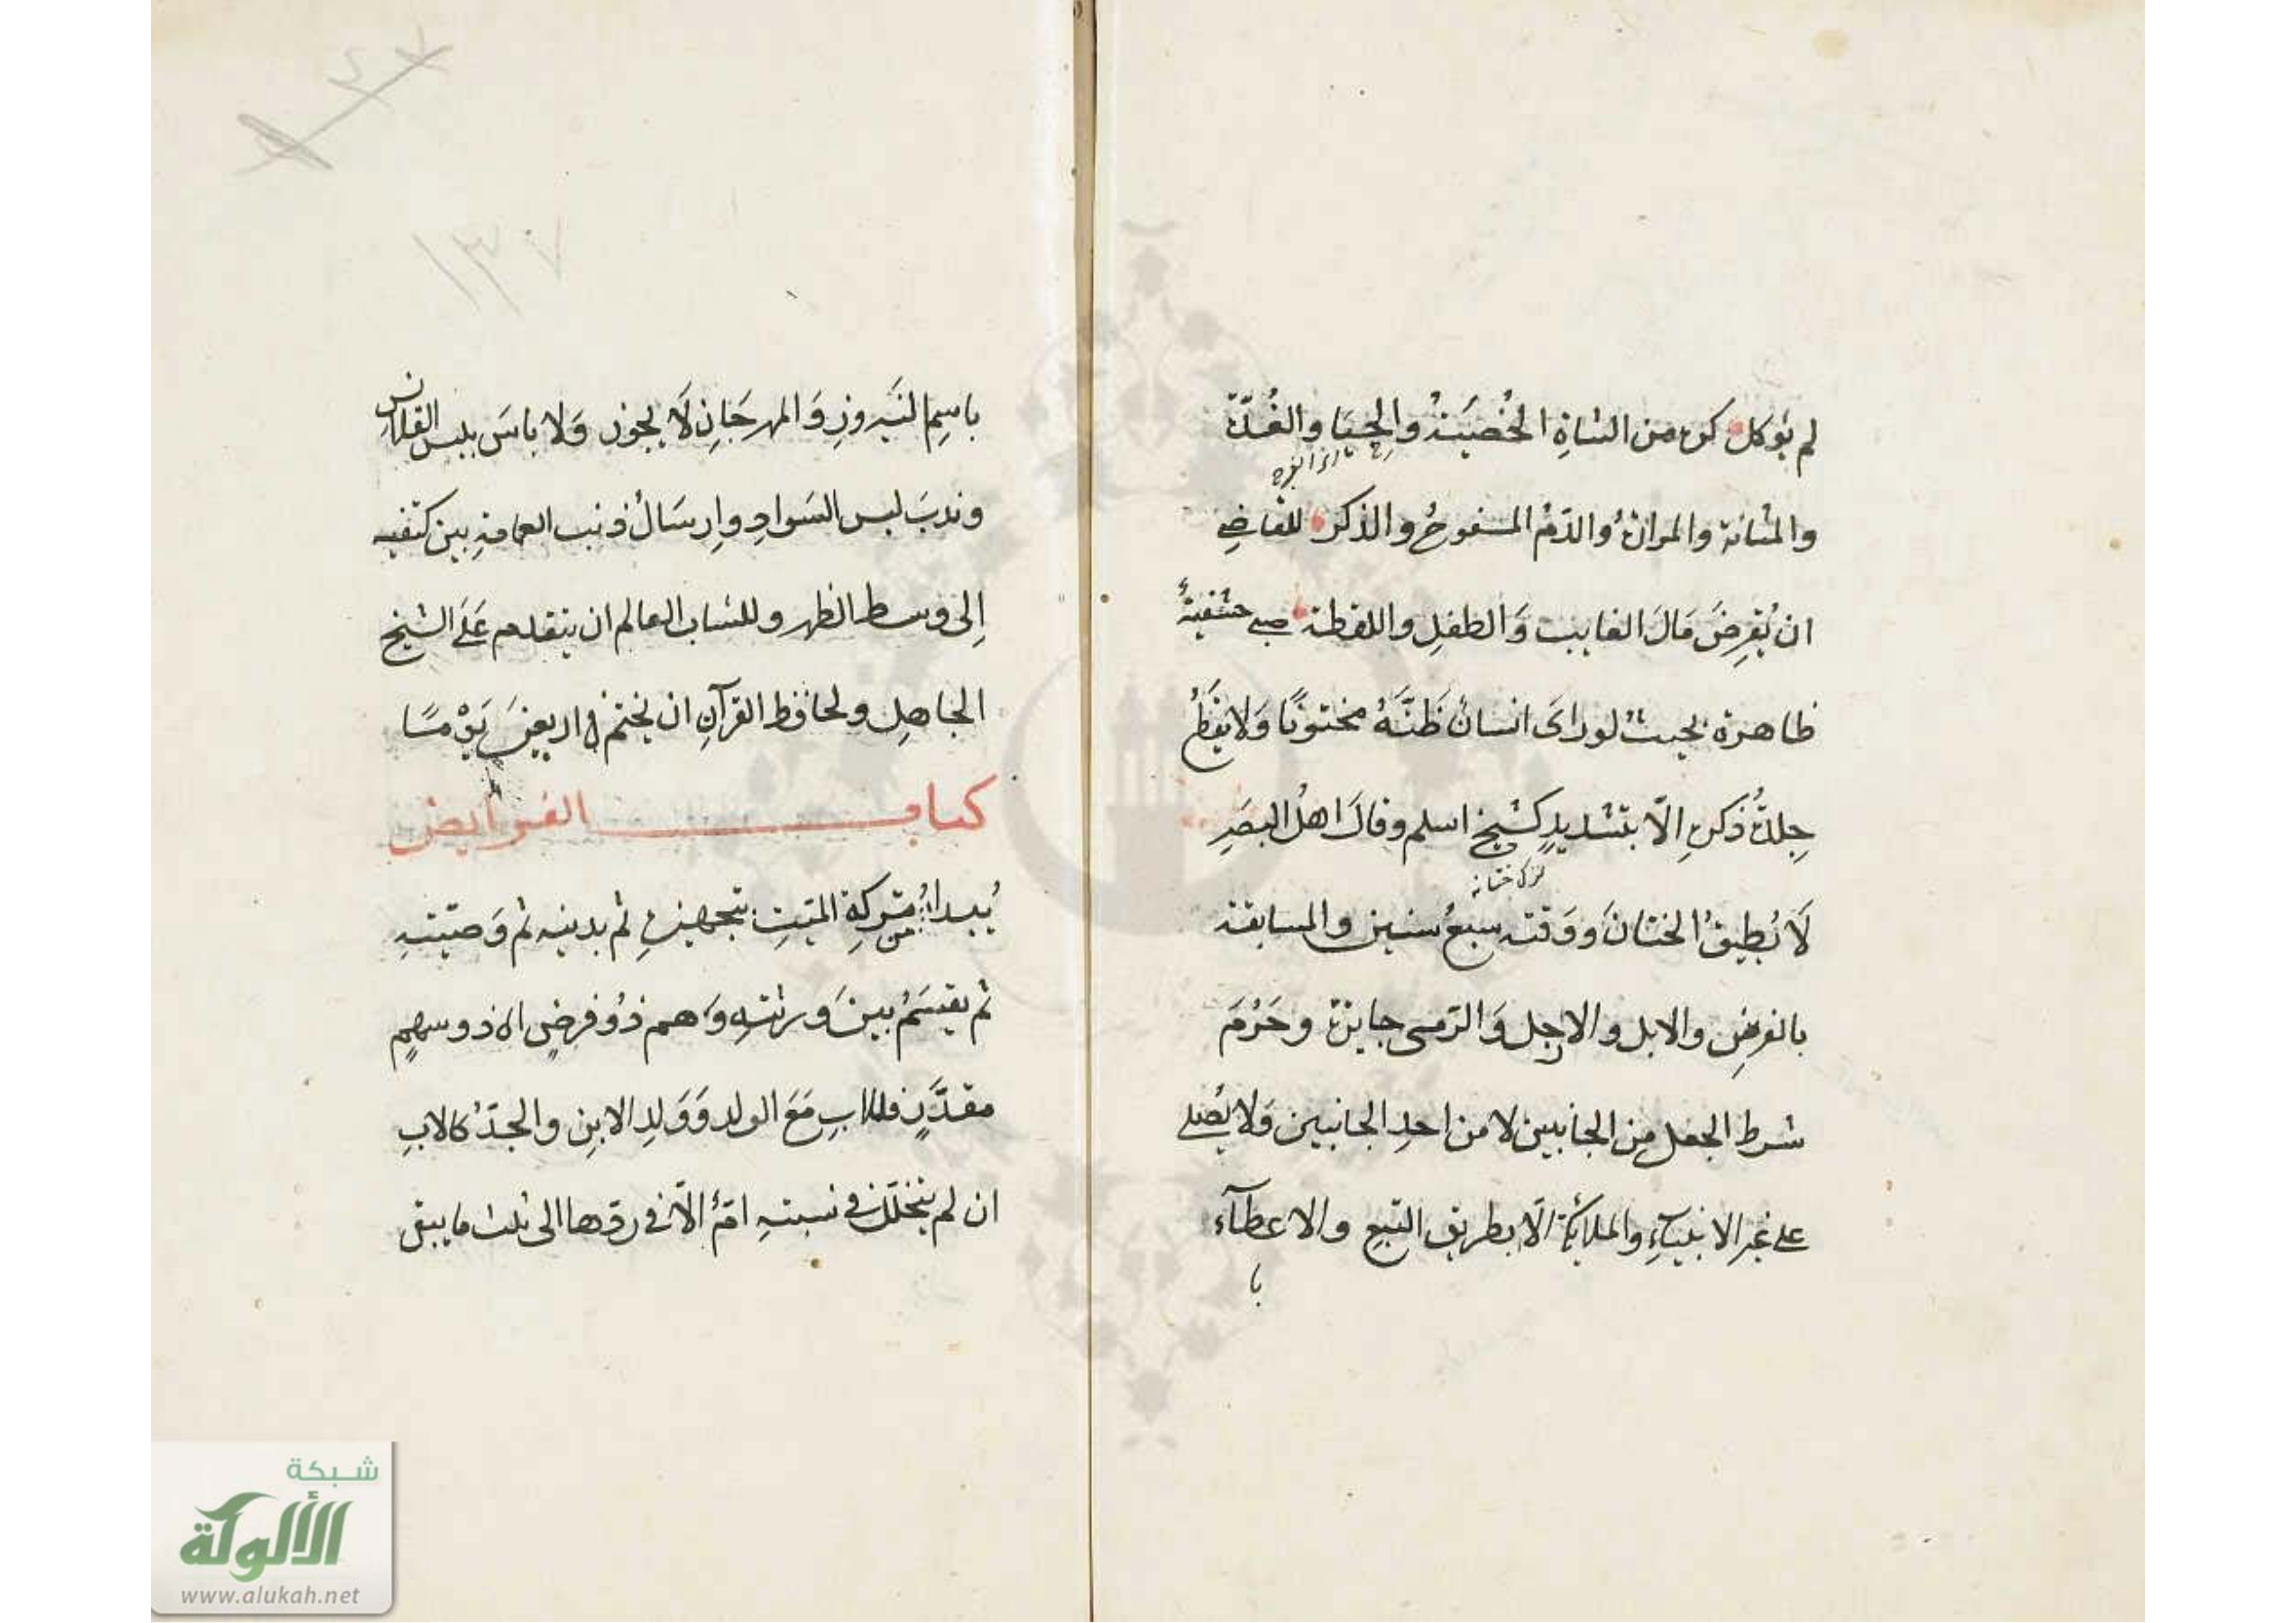 لم يؤكل كره من الشاة الخُصْيَةُ والحيا والغُدّة
والمثانة والمرارةُ والدّمُ المسفوحُ والذكر للقاضي
ان يُقرِضَ مَالَ الغايب وَالطفلِ واللقطة صبي حشفتهُ
ظاهرة بحيثُ لو رايَ انسانٌ ظَنَّهُ مختونًا وَلا يقطعُ
جِلدةُ ذكرهِ الّا بتشديدٍ كشيخ اسلم وقالَ اهلُ البصَرِ
لَا يُطيقُ الختانَ وَوَقته سبعُ سنين والمسابقة
بالفرسِ والابل والارجل وَالرّمي جايزة وحَرُمَ
شرط الجعل مِن الجانبين لا من احدِ الجانبين وَلا يُصلى
على غيرِ الانبياءِ والملائكة الّا بطريق التبع والاعطآء
با
باسمِ النيَروزِ وَالمهرجَانِ لَا يجوز وَلا باسَ بلبس القلانس
وندبَ لبس السَوادِ وارسَالُ ذنب العمامةِ بين كتفيه
اِلى وسط الظهر وللشاب العالم ان يتقدم عَلَى الشيخ
الجاهِلِ ولحافظ القرآنِ ان يختم في اربعينَ يَوْمًا
كتاب الفرايض
يُبدأ من تركةِ الميّتِ بتجهيزهِ ثم بدينه ثم وَصيّتهِ
ثم يقسَمُ بينَ وَرثتهِ وَهم ذُو فرضٍ اي ذو سهمٍ
مقدَّرٍ فللابِ مَعَ الولد وَوَلدِ الابنِ والجدّ كالابِ
ان لم يتخلّل في نسبتهِ امٌّ الّا في ردّها الى ثلث ما يبقى
شبكة
الألوكة
www.alukah.net